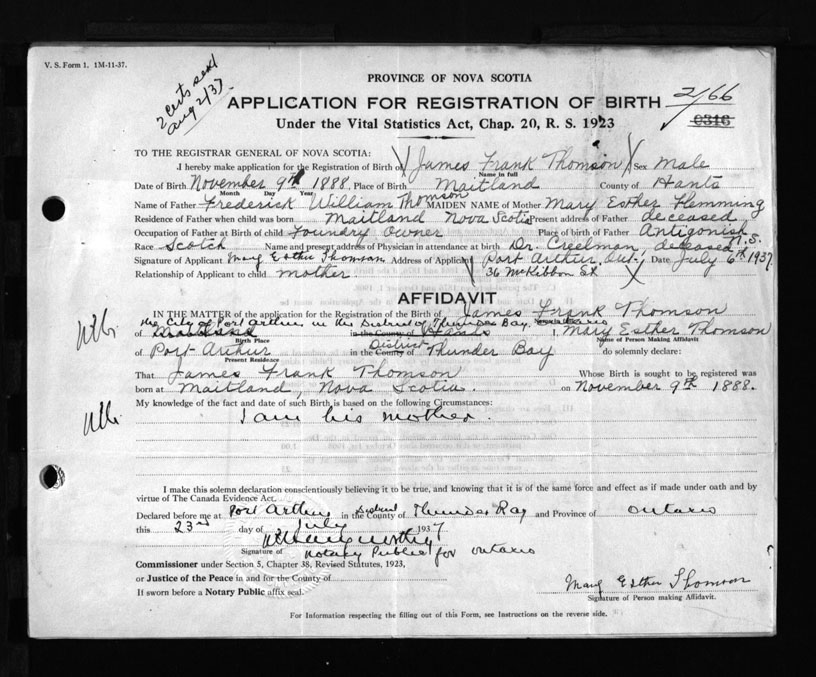 V. S. Form 1. 1M-11-37.
2 certs sent
Aug 2/37.
PROVINCE OF NOVA SCOTIA
APPLICATION FOR REGISTRATION OF BIRTH 2166
Under the Vital Statistics Act, Chap. 20, R. S. 1923 0316
TO THE REGISTRAR GENERAL OF NOVA SCOTIA:
I hereby make application for the Registration of Birth of James Frank Thomson Sex Male
Name in full
Date of Birth November 9th 1888. Place of Birth Maitland County of Hants
Month Day Year
Name of Father Frederick William Thomson MAIDEN NAME of Mother Mary Esther Flemming
Residence of Father when child was born Maitland Nova Scotia Present address of Father deceased
Occupation of Father at Birth of child Foundry Owner Place of birth of Father Antigonish N.S.
Race Scotch Name and present address of Physician in attendance at birth Dr. Creelman, deceased
Signature of Applicant Mary Esther Thomson Address of Applicant Port Arthur, Ont., Date July 6th 1937
Relationship of Applicant to child mother. 36 McKibbon St
AFFIDAVIT
IN THE MATTER of the application for the Registration of the Birth of James Frank Thomson
the City of Port Arthur in the District of Thunder Bay,
of in the County of Hants I, Mary Esther Thomson
Birth Place Name of Person Making Affidavit
of Port Arthur in the County of District Thunder Bay do solemnly declare:
Present Residence
That James Frank Thomson Whose Birth is sought to be registered was
born at Maitland, Nova Scotia. on November 9th 1888.
My knowledge of the fact and date of such Birth is based on the following Circumstances:
I am his mother.
I make this solemn declaration conscientiously believing it to be true, and knowing that it is of the same force and effect as if made under oath and by
virtue of The Canada Evidence Act.
Declared before me at Port Arthur in the County of District Thunder Bay and Province of Ontario
this 23rd day of July 1937
Signature of Notary Public for Ontario
Commissioner under Section 5, Chapter 38, Revised Statutes, 1923,
or Justice of the Peace in and for the County of
If sworn before a Notary Public affix seal.
Mary Esther Thomson
Signature of Person making Affidavit.
For Information respecting the filling out of this Form, see Instructions on the reverse side.